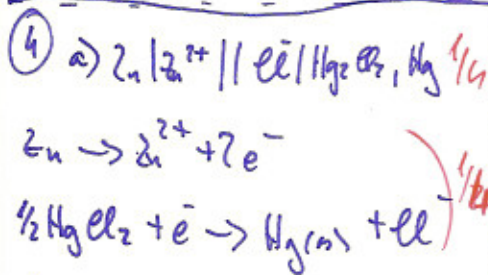 ④ a) Zn|Zn²⁺||Cl⁻|Hg₂Cl₂, Hg 1/4
Zn → Zn²⁺ + 2e⁻
1/2 HgCl₂ + e⁻ → Hg(m) + Cl⁻